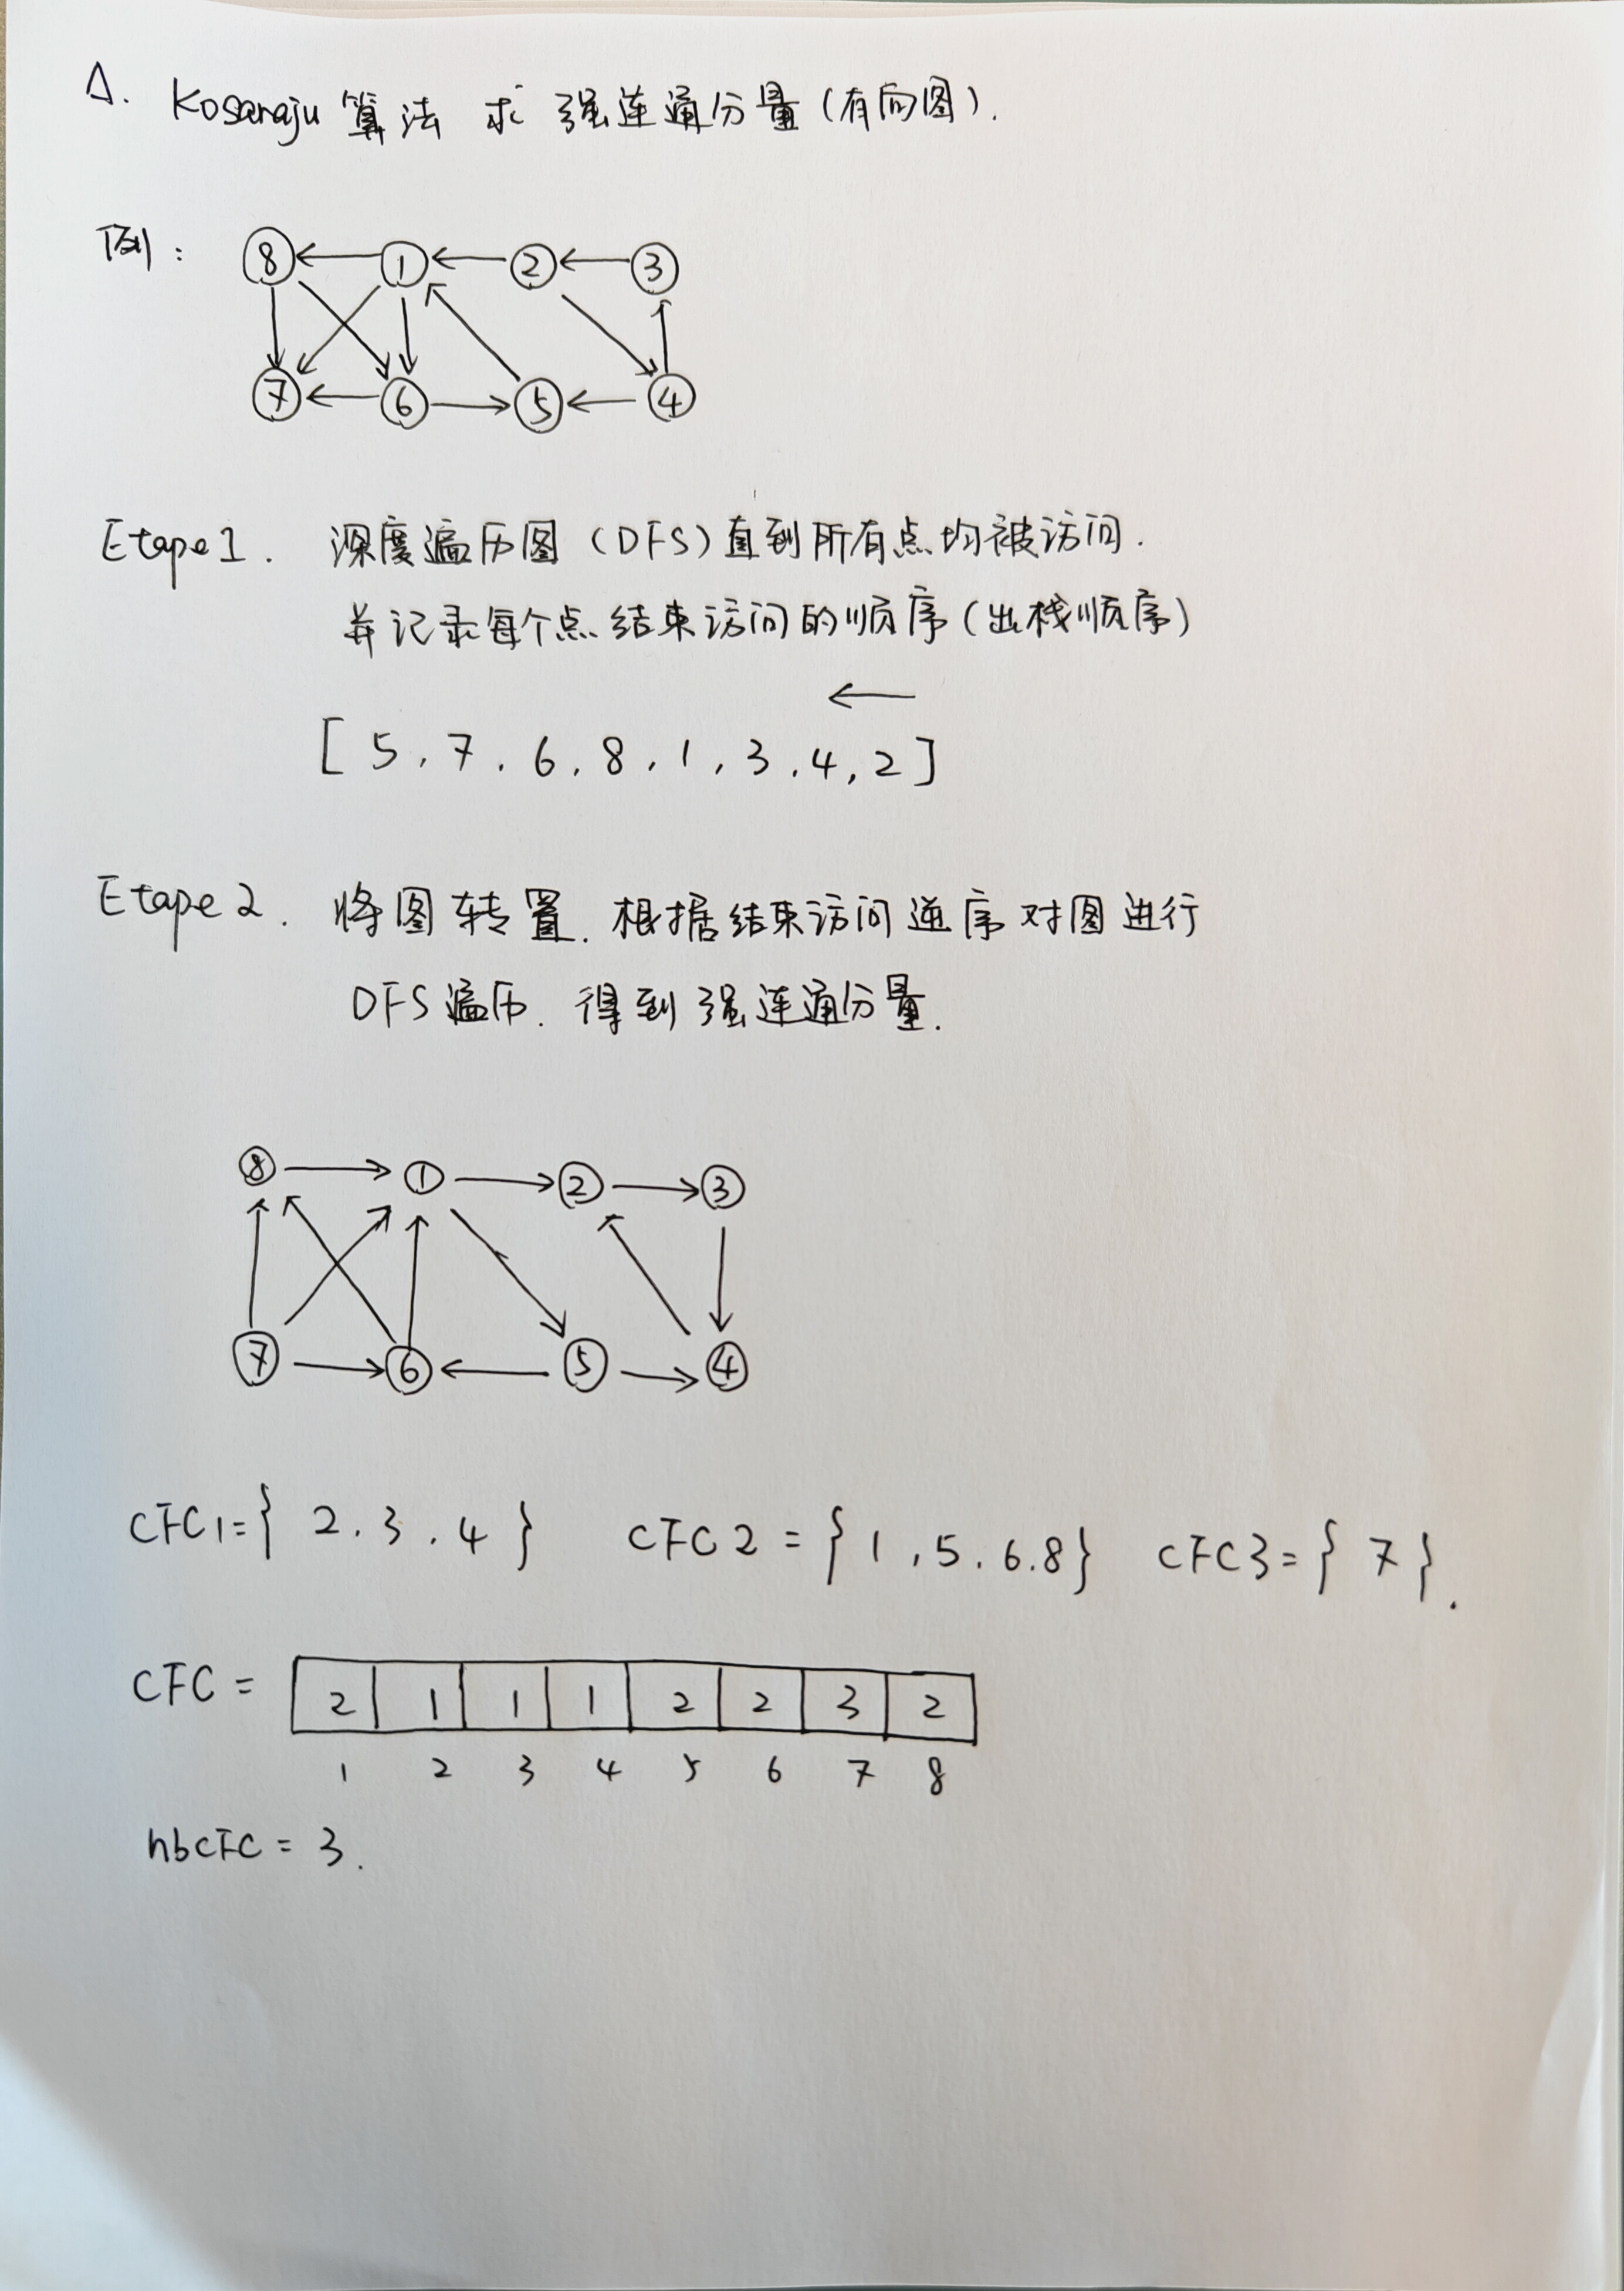 Δ. Kosaraju 算法 求 强连通分量(有向图).
例:
8 1 2 3
7 6 5 4
Etape1. 深度遍历图 (DFS)直到所有点均被访问.
并记录每个点结束访问的顺序(出栈顺序)
←
[ 5, 7, 6, 8, 1, 3, 4, 2 ]
Etape2. 将图转置. 根据结束访问逆序对图进行
DFS遍历. 得到强连通分量.
8 1 2 3
7 6 5 4
CFC1={ 2. 3. 4 } CFC2 = { 1, 5. 6. 8} CFC3= { 7 }.
CFC = 2 1 1 1 2 2 3 2
1 2 3 4 5 6 7 8
nbCFC = 3.